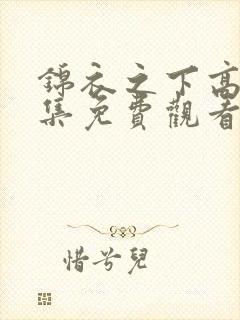 錦衣之下高
集免費觀看
惜兮兒